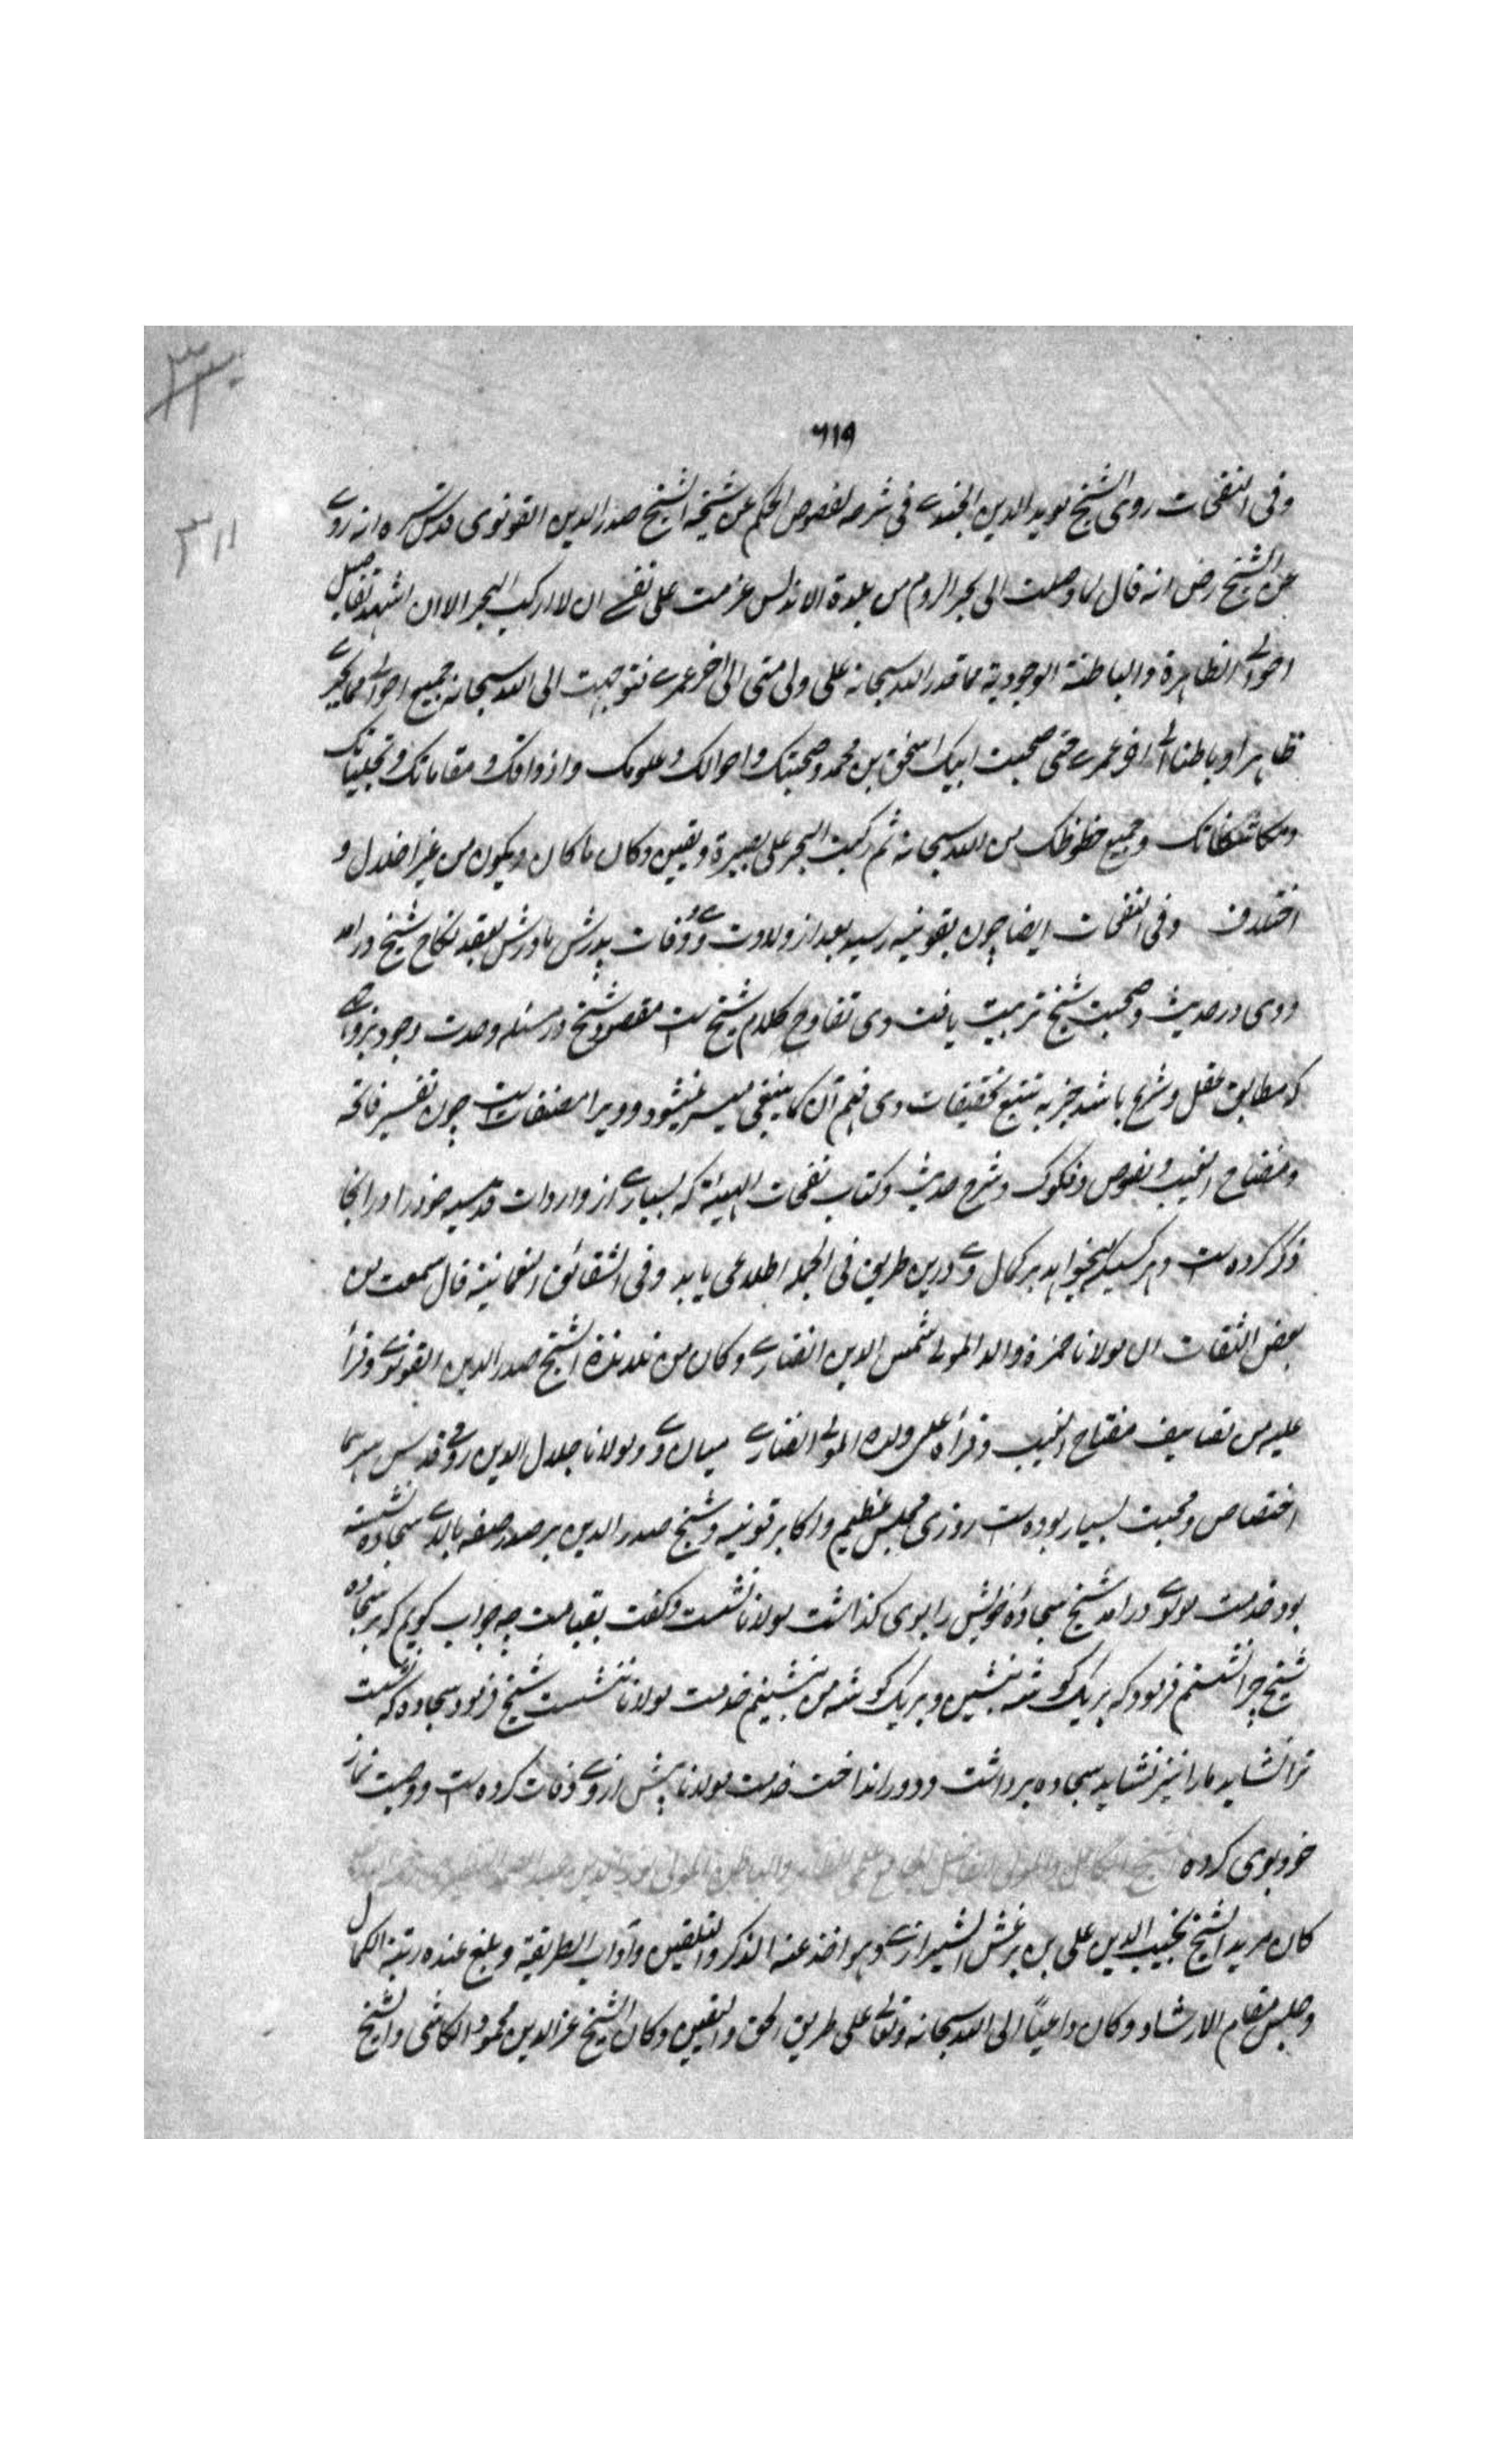 ٦١٩
٣١١
وفی النفحات روی الشیخ موید الدین الجندے فی شرحه لفصوص الحکم عن شیخه الشیخ صدر الدین القونوی قدس سره انه روے
عن الشیخ رض انه قال لما وصلت الی بحر الروم من بلدة الاندلس عزمت علی نفسے ان لا ارکب البحر الا ان اشهد تفاصیل
احوالی الظاهرة والباطنة الوجودیة مما قدر الله سبحانه علی ولی منی الی اخر عمرے فتوجهت الی الله سبحانه جمیع احوالی مما یجرے
ظاهرا وباطنا الی اخر عمرے حتی صحبت ابیک اسحق بن محمد وصحبتک واحوالک وعلومک واذواقک ومقاماتک وتجلیاتک
ومکاشفاتک وجمیع حظوظک من الله سبحانه ثم رکبت البحر علی بصیرة ویقین وکان ما کان ویکون من غیر اخلال و
اختلاف وفی النفحات ایضا چون بقونیه رسید بعد از ولادت وے ووفات پدرش مادرش بعقد نکاح شیخ درامد
ووی در حدیث وصحبت شیخ تربیت یافت وی نقاوح کلام شیخ ست مقصود شیخ در مسئله وحدت وجود بر وجهی
که مطابق عقل وشرع باشد جز به تتبع تحقیقات وی فهم آن کما ینبغی میسر نمیشود وویرا مصنفات ست چون تفسیر فاتحه
ومفتاح الغیب ونصوص وفکوک وشرح حدیث وکتاب نفحات الهیة که بسیارے از واردات قدسیه خود را در انجا
ذکر کرده ست وهر کسیکه میخواهد بر کمال وے درین طریق فی الجمله اطلاعی یابد وفی الشقائق النعمانیة قال سمعت من
بعض الثقات ان مولانا حمزة والد المولی شمس الدین الفنارے وکان من تلامذة الشیخ صدر الدین القونوے وقرأ
علیه من تصانیف مفتاح الغیب وقرأه علی ولده المولی الفنارے میان وے ومولانا جلال الدین رومی قدس سرهما
اختصاص ومحبت بسیار بوده ست روزی مجلس عظیم واکابر قونیه وشیخ صدر الدین بر صدر صفه بالاے سجاده نشسته
بود خدمت مولوے درامد شیخ سجادهٔ خویش را بوی کذاشت مولانا ننشست وکفت بقیامت چه جواب کویم که بر سجاده
شیخ چرا نشستم فرمود که بر یک کوشه تو بنشین وبر یک کوشه من بنشینم خدمت مولانا ننشست شیخ فرمود سجاده که نشست
ترا نشاید مارا نیز نشاید سجاده برداشت ودور انداخت خدمت مولانا پیش از وے وفات کرده ست ووصیت نماز
خود بوی کرده
کان مرید الشیخ نجیب الدین علی بن بزغش الشیرازے وهو اخذ عنه الذکر والتلقین وآداب الطریقة وبلغ عنده رتبة الکمال
وجلس مقام الارشاد وکان داعیاً الی الله سبحانه وتعالی علی طریق الحق والیقین وکان الشیخ عز الدین محمود الکاشی والشیخ